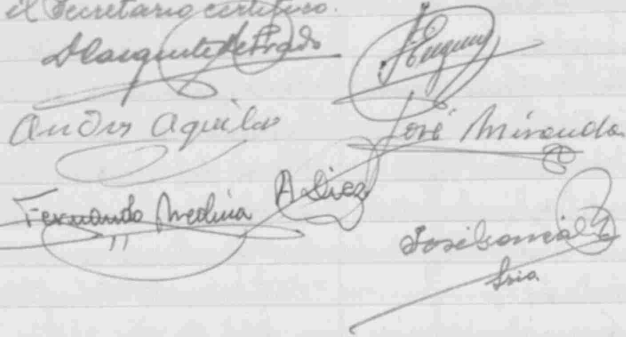 el Secretario certifico.
Andrés Aguilar
José Miranda
Fernando Medina
A Saez
José García
Sria